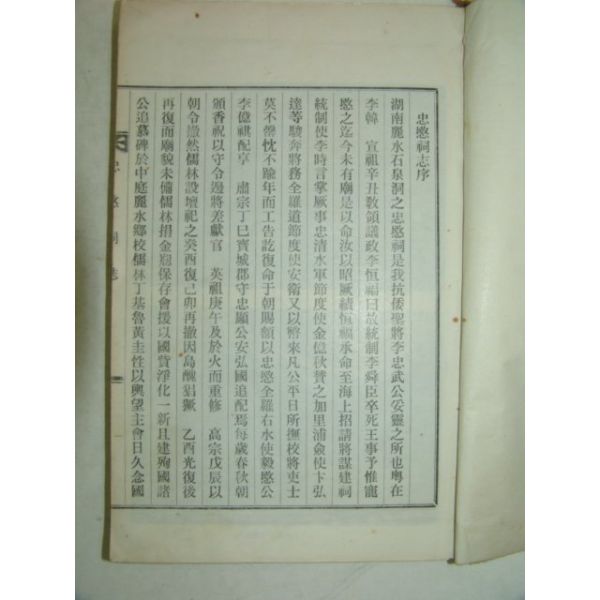 忠愍祠志序
湖南麗水石泉洞之忠愍祠是我抗倭聖將李忠武公妥靈之所也粤在
李韓　宣祖辛丑敎領議政李恒福曰故統制李舜臣卒死王事予惟寵
愍之迄今未有廟是以命汝以昭厥績恒福承命至海上招請將謀建祠
統制使李時言掌厥事忠清水軍節度使金億秋贊之加里浦僉使卞弘
達等駿奔將務全羅道節度使安衛又以幣来凡公平日所撫校將吏士
莫不罄忱不踰年而工告訖復命于朝賜額以忠愍全羅右水使毅愍公
李億祺配享　肅宗丁巳寶城郡守忠顯公安弘國追配焉每歲春秋朝
頒香祝以守令邊將差獻官　英祖庚午及於火而重修　高宗戊辰以
朝令撤然儒林設壇祀之癸酉復己卯再撤因島醜猖獗　乙酉光復後
再復而廟貌未備儒林捐金寃保存會援以國費淨化一新且建殉國諸
公追慕碑於中庭麗水鄕校儒林丁基魯黃圭性以輿望主會日久念國
忠愍祠誌